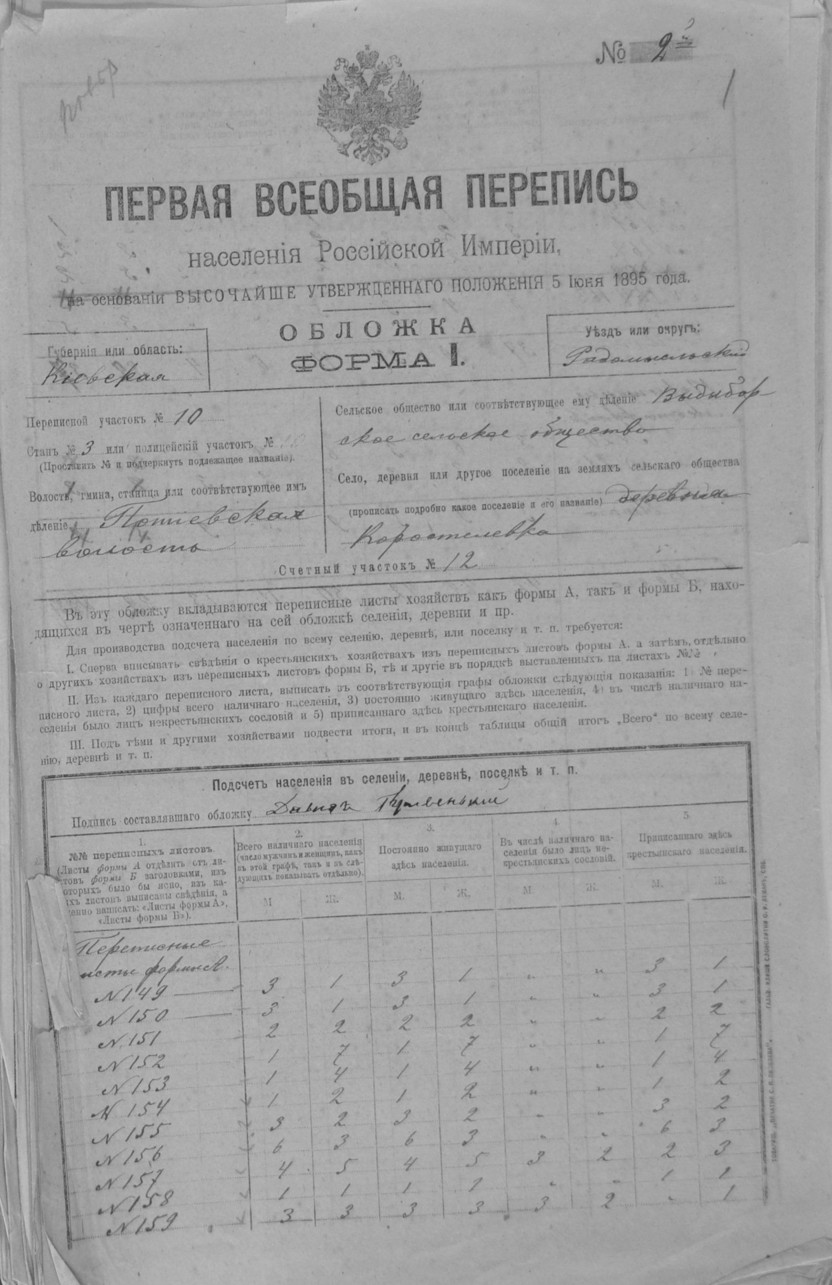 № 2
1
ПЕРВАЯ ВСЕОБЩАЯ ПЕРЕПИСЬ
населенія Россійской Имперіи,
на основаніи ВЫСОЧАЙШЕ УТВЕРЖДЕННАГО ПОЛОЖЕНІЯ 5 Іюня 1895 года.
ОБЛОЖКА
ФОРМА I.
Губернія или область:
Кіевская
Уѣздъ или округъ:
Радомысльскій
Переписной участокъ № 10
Станъ № 3 или полицейскій участокъ №
(Проставить № и подчеркнуть подлежащее названіе).
Волость, гмина, станица или соотвѣтствующее имъ
дѣленіе Потіевская
волость
Сельское общество или соотвѣтствующее ему дѣленіе Выдибор
ское сельское общество
Село, деревня или другое поселеніе на земляхъ сельскаго общества
(прописать подробно какое поселеніе и его названіе) деревня
Коростелевка
Счетный участокъ № 12
Въ эту обложку вкладываются переписные листы хозяйствъ какъ формы А, такъ и формы Б, нахо-
дящихся въ чертѣ означеннаго на сей обложкѣ селенія, деревни и пр.
Для производства подсчета населенія по всему селенію, деревнѣ, или поселку и т. п. требуется:
I. Сперва вписывать свѣдѣнія о крестьянскихъ хозяйствахъ изъ переписныхъ листовъ формы А. а затѣмъ, отдѣльно
о другихъ хозяйствахъ изъ переписныхъ листовъ формы Б, тѣ и другіе въ порядкѣ выставленныхъ на листахъ №№
II. Изъ каждаго переписного листа, выписать въ соотвѣтствующія графы обложки слѣдующія показанія: 1) № пере-
писного листа. 2) цифры всего наличнаго населенія, 3) постоянно живущаго здѣсь населенія, 4) въ числѣ наличнаго на-
селенія было лицъ некрестьянскихъ сословій и 5) приписаннаго здѣсь крестьянскаго населенія.
III. Подъ тѣми и другими хозяйствами подвести итоги, и въ концѣ таблицы общій итогъ „Всего" по всему селе-
нію, деревнѣ и т. п.
Подсчетъ населенія въ селеніи, деревнѣ, поселкѣ и т. п.
Подпись составлявшаго обложку
1. 2. 3. 4. 5.
№№ переписныхъ листовъ
(Листы формы А отдѣлить отъ ли-
стовъ формы Б заголовками, изъ
которыхъ было бы ясно, изъ ка-
ихъ листовъ выписаны свѣдѣнія, а
енно написать: «Листы формы А»,
«Листы формы Б»).
Всего наличнаго населенія
(число мужчинъ и женщинъ, какъ
въ этой графѣ, такъ и въ слѣ-
дующихъ показывать отдѣльно).
Постоянно живущаго
здѣсь населенія.
Въ числѣ наличнаго на-
селенія было лицъ не-
крестьянскихъ сословій.
Приписаннаго здѣсь
крестьянскаго населенія.
М. Ж. М. Ж. М. Ж. М. Ж.
Переписные
исты формы А.
№ 149 3 1 3 1 „ „ 3 1
№ 150 3 1 3 1 „ „ 3 1
№ 151 2 2 2 2 „ „ 2 2
№ 152 1 7 1 7 „ „ 1 7
№ 153 1 4 1 4 „ „ 1 4
№ 154 1 2 1 2 „ „ 1 2
№ 155 3 2 3 2 „ „ 3 2
№ 156 6 3 6 3 „ „ 6 3
№ 157 4 5 4 5 3 2 2 3
№ 158 1 1 1 1 „ „ 1 1
№ 159 3 3 3 3 3 2 „ 1